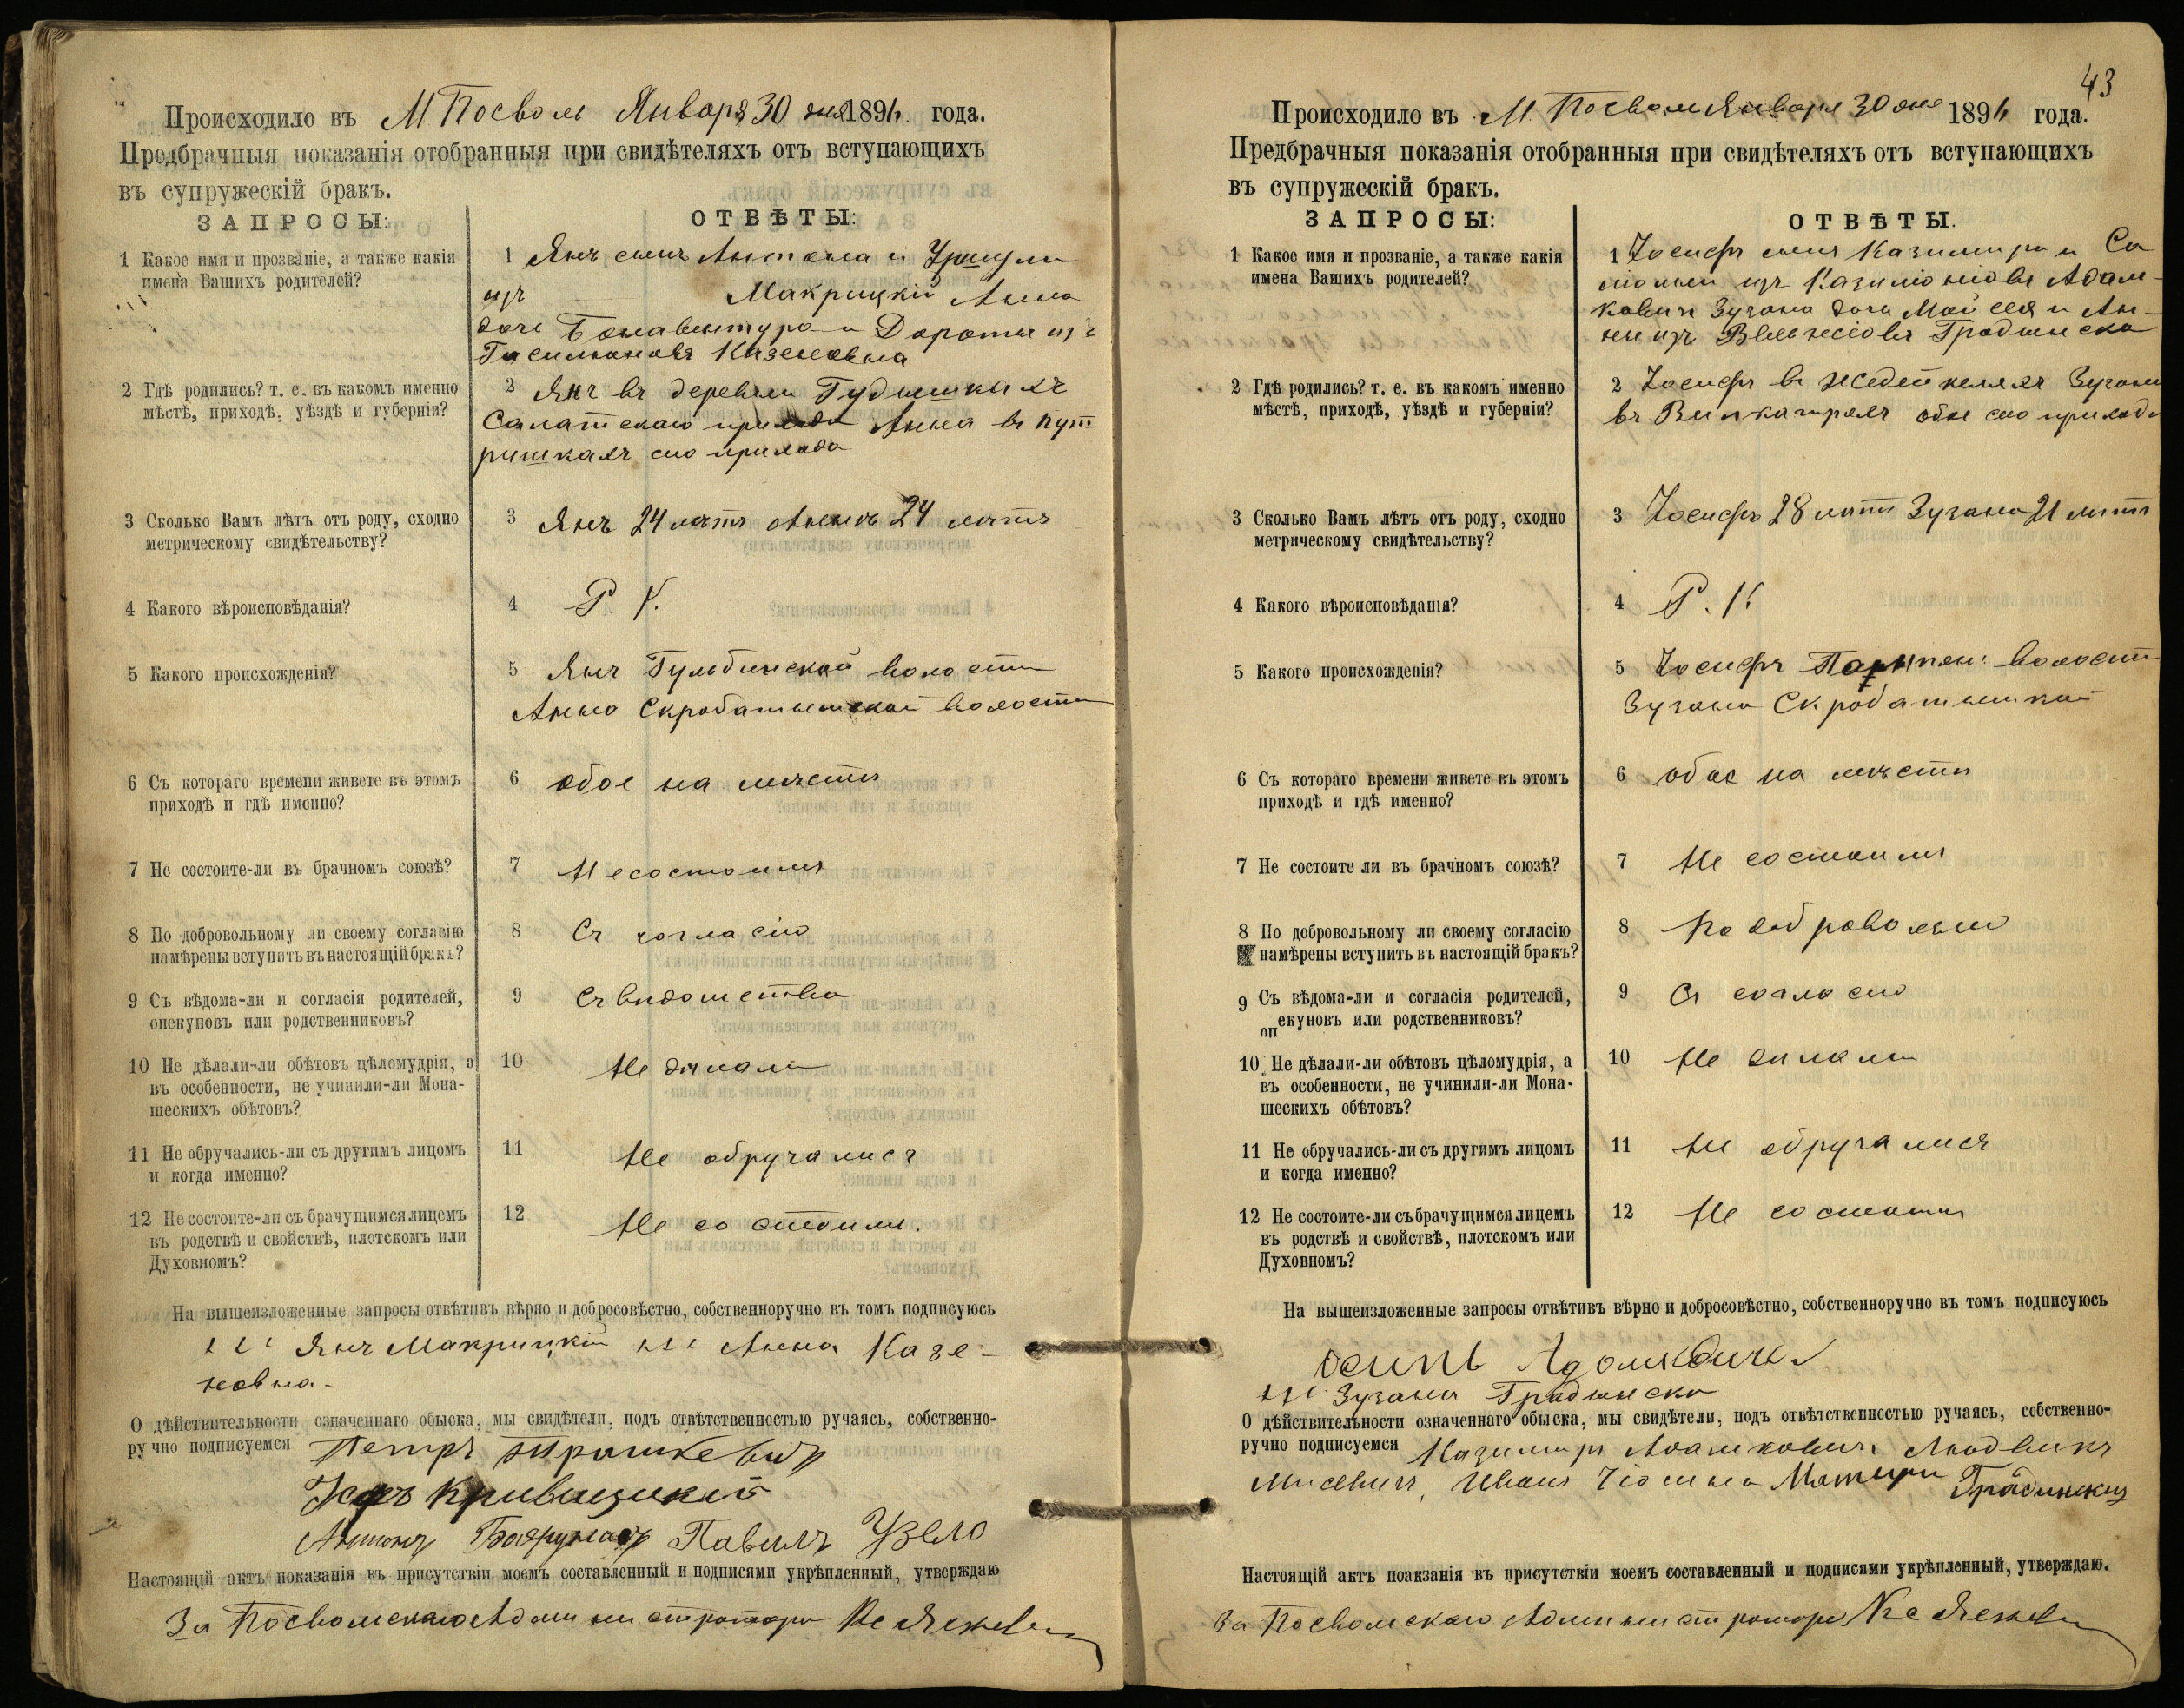 Происходило въ М Посволи Января 30 дня 1894 года.
Предбрачныя показанія отобранныя при свидѣтеляхъ отъ вступающихъ
въ супружескій бракъ.
ЗАПРОСЫ:
ОТВѢТЫ:
1 Какое имя и прозваніе, а также какія
имена Вашихъ родителей?
1 Янъ сынъ Антона и Уршули
изъ Макрицкій Анна
дочь Бонавентура и Дороты изъ
Казеновна
2 Гдѣ родились? т. е. въ какомъ именно
мѣстѣ, приходѣ, уѣздѣ и губернія?
2 Янъ въ деревни Гудышкахъ
Салатскаго прихода Анна въ Пут-
ришкахъ сио прихода
3 Сколько Вамъ лѣтъ отъ роду, сходно
метрическому свидѣтельству?
3 Янъ 24 лѣтъ Анна 24 лѣтъ
4 Какого вѣроисповѣданія?
4 Р. К.
5 Какого происхожденія?
5 Янъ Гульбинской волости
Анна Скробатышской волости
6 Съ котораго времени живете въ этомъ
приходѣ и гдѣ именно?
6 обое на мѣсти
7 Не состоите-ли въ брачномъ союзѣ?
7 Несостоимя
8 По добровольному ли своему согласію
намѣрены вступить въ настоящій бракъ?
8 Съ согласію
9 Съ вѣдома-ли и согласія родителей,
опекуновъ или родственниковъ?
9 Съ видомства
10 Не дѣлали-ли обѣтовъ цѣломудрія, а
въ особенности, не учинили-ли Мона-
шескихъ обѣтовъ?
10 Не дѣлали
11 Не обручались-ли съ другимъ лицомъ
и когда именно?
11 Не обручалися
12 Не состоите-ли съ брачущимся лицемъ
въ родствѣ и свойствѣ, плотскомъ или
Духовномъ?
12 Не состоимя.
На вышеизложенные запросы отвѣтивъ вѣрно и добросовѣстно, собственноручно въ томъ подписуюсь
Янъ Макрицкій Анна Казе-
новна
О дѣйствительности означеннаго обыска, мы свидѣтели, подъ отвѣтственностью ручаясь, собственно-
ручно подписуемся Петръ Трашкевич
Кривицкій
Антонъ Павелъ Узело
Настоящій актъ показанія въ присутствіи моемъ составленный и подписями укрѣпленный, утверждаю
За Посвольскаго Администратора Кс
43
Происходило въ М. Посволи Января 30 дня 1894 года.
Предбрачныя показанія отобранныя при свидѣтеляхъ отъ вступающихъ
въ супружескій бракъ.
ЗАПРОСЫ:
ОТВѢТЫ.
1 Какое имя и прозваніе, а также какія
имена Вашихъ родителей?
1 Іосифъ сынъ Казимира и Са
изъ Адам-
ковичъ Зузана дочь Мойсея и Ан-
ны изъ Градинска
2 Гдѣ родились? т. е. въ какомъ именно
мѣстѣ, приходѣ, уѣздѣ и губерніи?
2 Іосифъ въ Зузана
въ обое сио прихода
3 Сколько Вамъ лѣтъ отъ роду, сходно
метрическому свидѣтельству?
3 Іосифъ 28 лѣтъ Зузана 21 лѣтъ
4 Какого вѣроисповѣданія?
4 Р. К.
5 Какого происхожденія?
5 Іосифъ волости
Зузана Скробатышкай
6 Съ котораго времени живете въ этомъ
приходѣ и гдѣ именно?
6 обое на мѣсти
7 Не состоите ли въ брачномъ союзѣ?
7 Не состоимя
8 По добровольному ли своему согласію
намѣрены вступить въ настоящій бракъ?
8 По добровольно
9 Съ вѣдома-ли и согласія родителей,
опекуновъ или родственниковъ?
9 Съ согласію
10 Не дѣлали-ли обѣтовъ цѣломудрія, а
въ особенности, не учинили-ли Мона-
шескихъ обѣтовъ?
10 Не дилали
11 Не обручались-ли съ другимъ лицомъ
и когда именно?
11 Не обручалися
12 Не состоите-ли съ брачущимся лицемъ
въ родствѣ и свойствѣ, плотскомъ или
Духовномъ?
12 Не состоимя
На вышеизложенные запросы отвѣтивъ вѣрно и добросовѣстно, собственноручно въ томъ подписуюсь
осипъ Адомковичъ
Зузана Градинска
О дѣйствительности означеннаго обыска, мы свидѣтели, подъ отвѣтственностью ручаясь, собственно-
ручно подписуемся Казимиръ Адамковичъ Людвикъ
Мисевичъ, Иванъ Градинскій
Настоящій актъ поакзанія въ присутствіи моемъ составленный и подписями укрѣпленный, утверждаю.
За Посвольскаго Администратора Кс